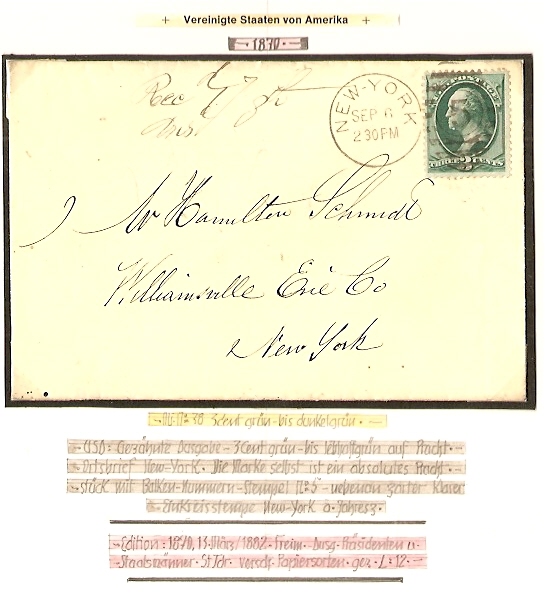 + Vereinigte Staaten von Amerika +
- 1870 -
Rec
NEW-YORK
SEP 6
230PM
U.S. POSTAGE
THREE 3 CENTS
Mr Hamilton Schmidt
Williamsville Erie Co
New York
36 3Cent grün - bis dunkelgrün. -
USA: Gezähnte Ausgabe - 3Cent grün - bis lebhaftgrün auf Pracht -
Ortsbrief New-York. Die Marke selbst ist ein absolutes Pracht -
stück mit Balken-Nummern-Stempel N° 5 - nebenan zarter klarer
Einkreisstempel New-York o. Jahresz.
Edition: 1870, 13. März / 1882. Freim. Ausg. Präsidenten u.
Staatsmänner. StTdr. versch. Papiersorten gez. L: 12 -